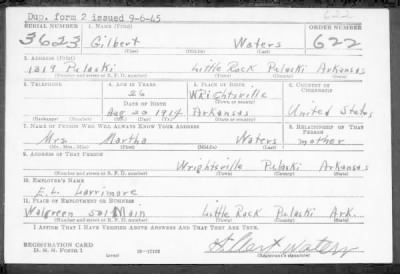 Dup. form 2 issued 9-6-45
SERIAL NUMBER 1. NAME (Print) ORDER NUMBER
3623 Gilbert Waters 622
(First) (Middle) (Last)
2. ADDRESS (Print)
1319 Pulaski Little Rock Pulaski Arkansas
(Number and street or R. F. D. number) (Town) (County) (State)
3. TELEPHONE 4. AGE IN YEARS 5. PLACE OF BIRTH 6. COUNTRY OF CITIZENSHIP
26 Wrightsville
DATE OF BIRTH (Town or county)
Aug 20 1914 Arkansas United States
(Exchange) (Number) (Mo.) (Day) (Yr.) (State or country)
7. NAME OF PERSON WHO WILL ALWAYS KNOW YOUR ADDRESS 8. RELATIONSHIP OF THAT PERSON
Mrs. Martha Waters mother
(Mr., Mrs., Miss) (First) (Middle) (Last)
9. ADDRESS OF THAT PERSON
Wrightsville Pulaski Arkansas
(Number and street or R. F. D. number) (Town) (County) (State)
10. EMPLOYER'S NAME
E. L. Larrimore
11. PLACE OF EMPLOYMENT OR BUSINESS
Walgreen 501 Main Little Rock Pulaski Ark.
(Number and street or R. F. D. number) (Town) (County) (State)
I AFFIRM THAT I HAVE VERIFIED ABOVE ANSWERS AND THAT THEY ARE TRUE.
REGISTRATION CARD
D. S. S. FORM 1 (over) Gilbert Waters
(Registrant's signature)